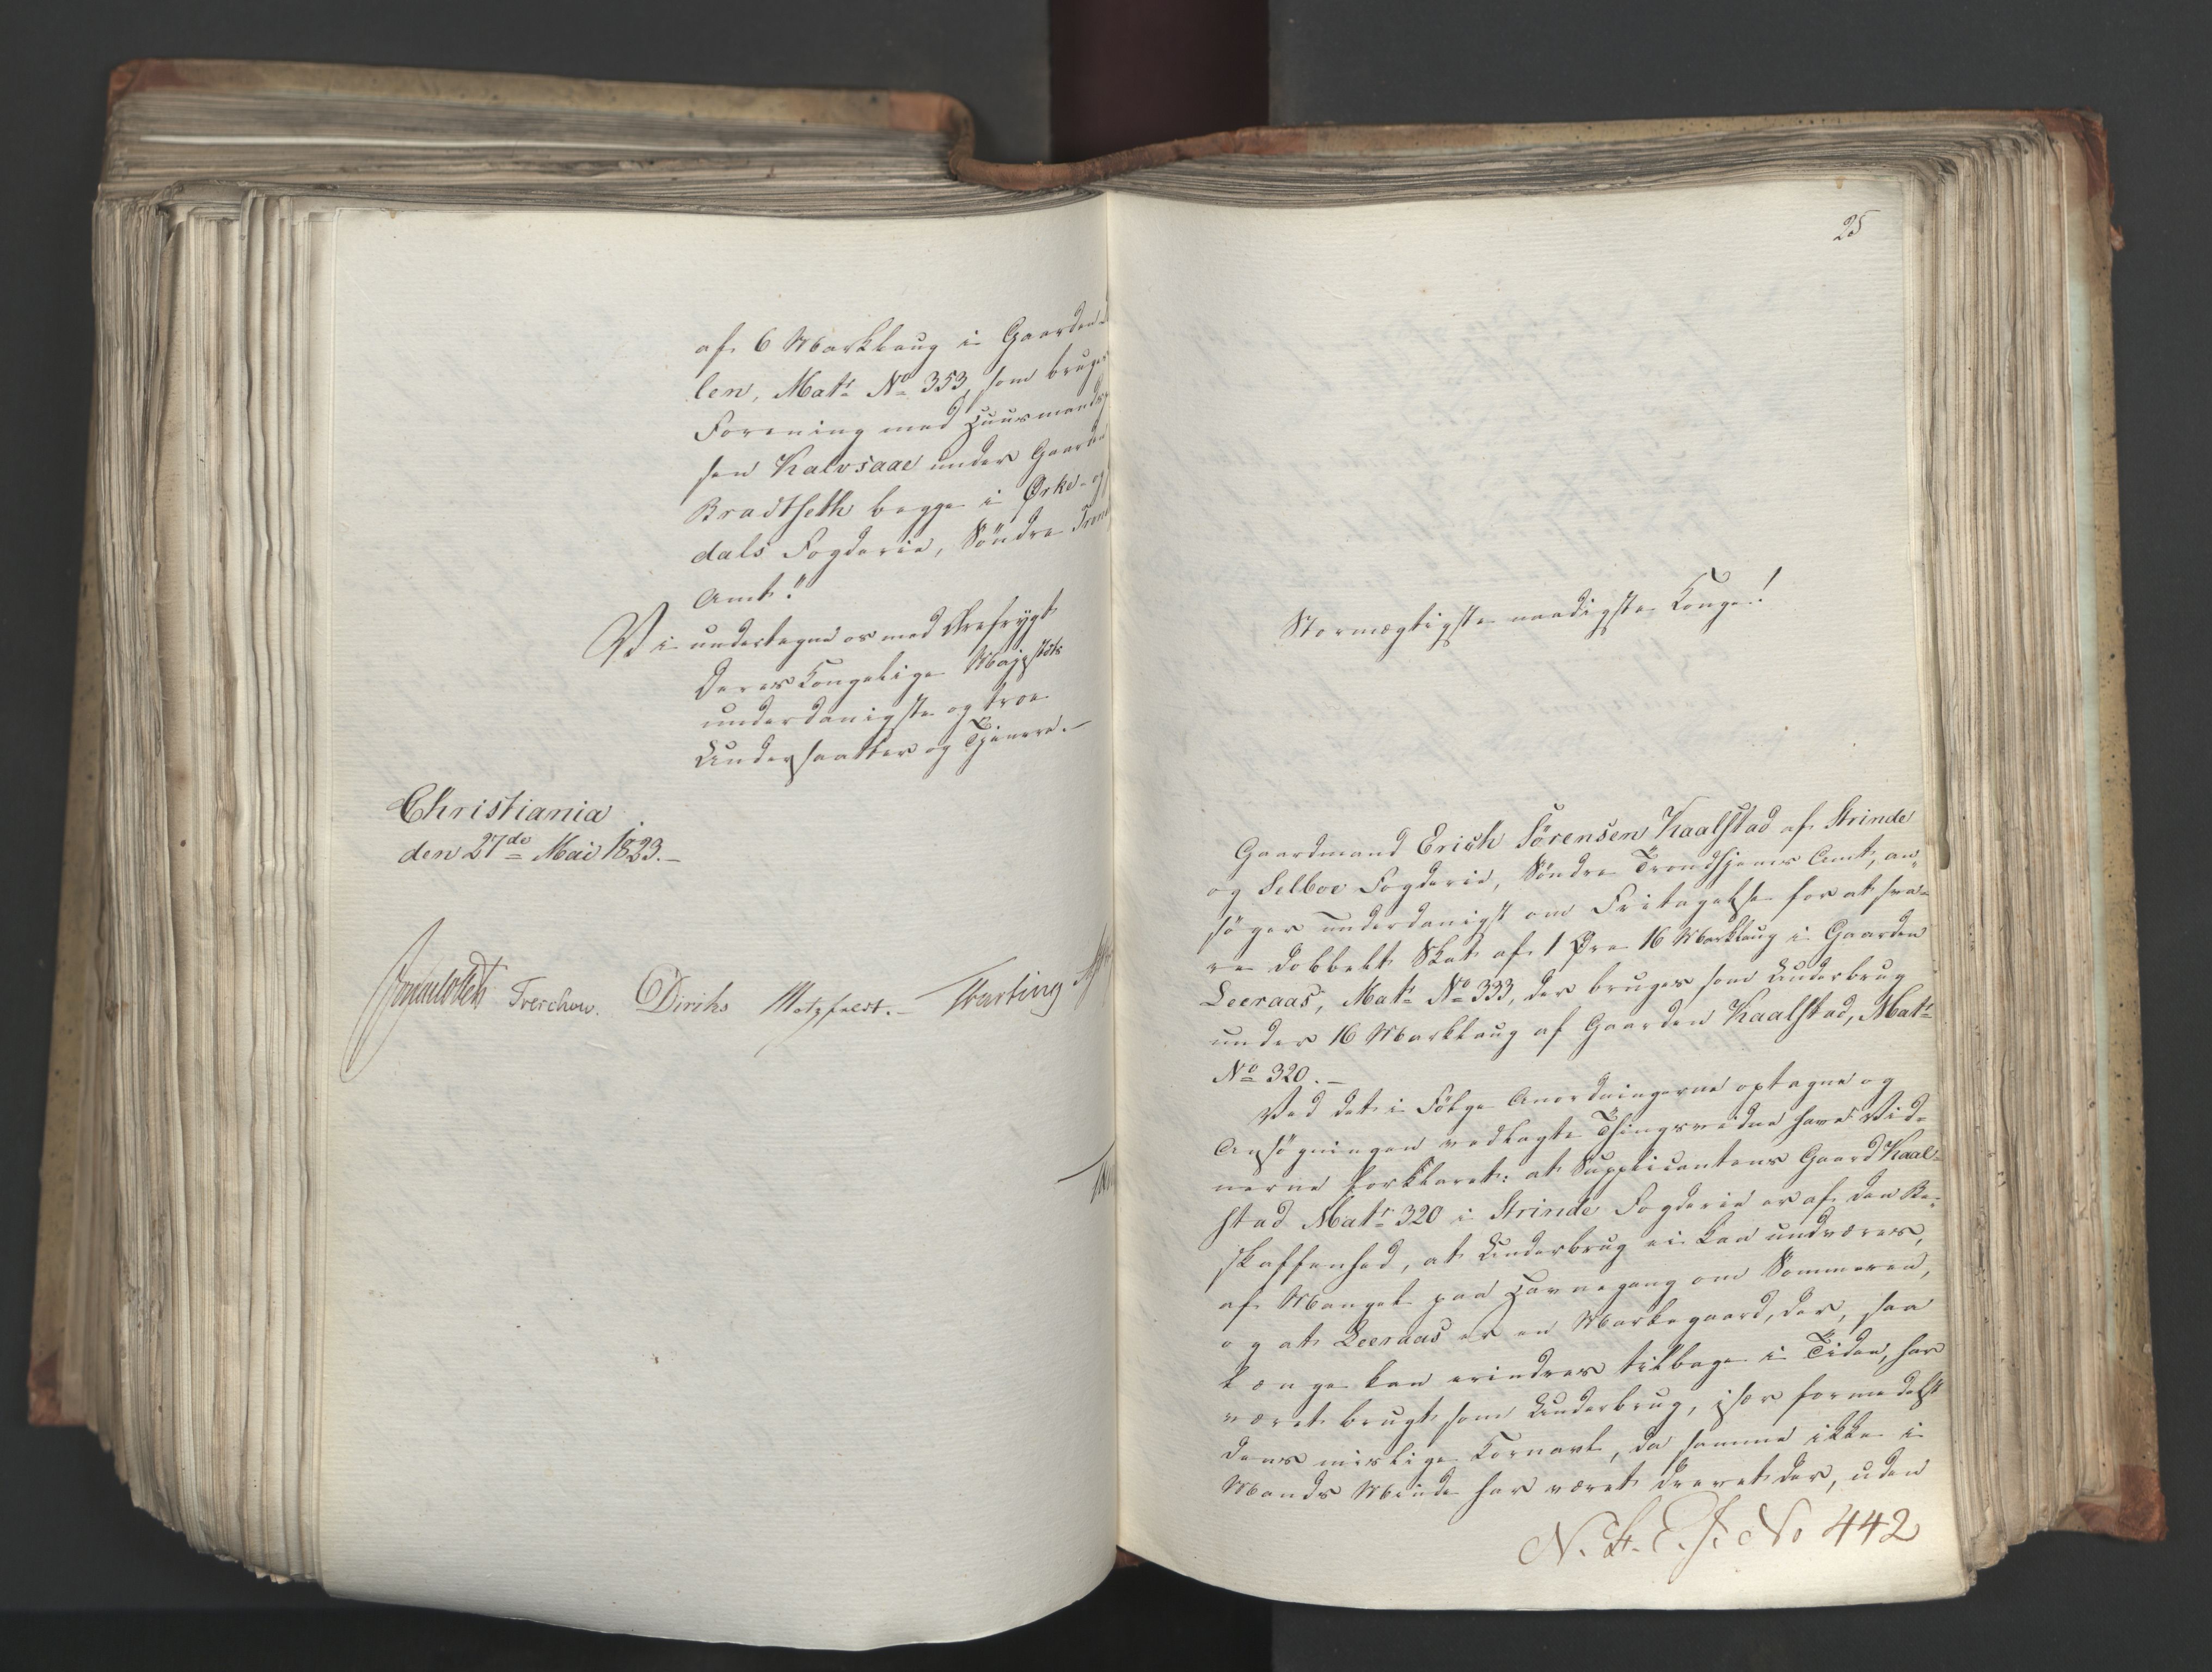 af 6 Marklaug i Gaarden
len, Matr No 353, som bruges
Forening med Huusmands
sen Kalvsaae under Gaarden
Bradtseth begge i Ørke- og
dals Fogderie, Söndre Trond
Amt."
Vi undertegne os med Ærefrygt
Deres Kongelige Majestæts
underdanigste og troe
Undersaatter og Tjenere.-
Christiania
den 27de Mai 1823.-
Treschow. Diriks Motzfeldt.-
25
Stormægtigste naadigste Konge!
Gaardmand Erich Sörensen Kaalstad af Strinde
og Selboe Fogderie, Söndre Trondhjems Amt, an-
söger underdanigst om Fritagelse for at sva-
re dobbelt Skat af 1 Øre 16 Marklaug i Gaarden
Leeraas, Matr No 333, der bruges som Underbrug
under 16 Marklaug af Gaarden Kaalstad, Matr
No 320.-
Ved det i Fölge Anordningerne optagne og
Ansögningen vedlagte Thingsvidne have Vid-
nerne forklaret: at Supplicantens Gaard Kaal-
stad Matr 320 i Strinde Fogderie er af den Be-
skaffenhed, at Underbrug ei kan undværes,
af Mangel paa Havnegang om Sommeren,
og at Leeraas er en Markegaard, der, saa
længe kan erindres tilbage i Tiden, har
været brugt som Underbrug, især formedelst
dens mislige Kornavl, da samme ikke i
Mands Minde har været drevet der, uden
No 442